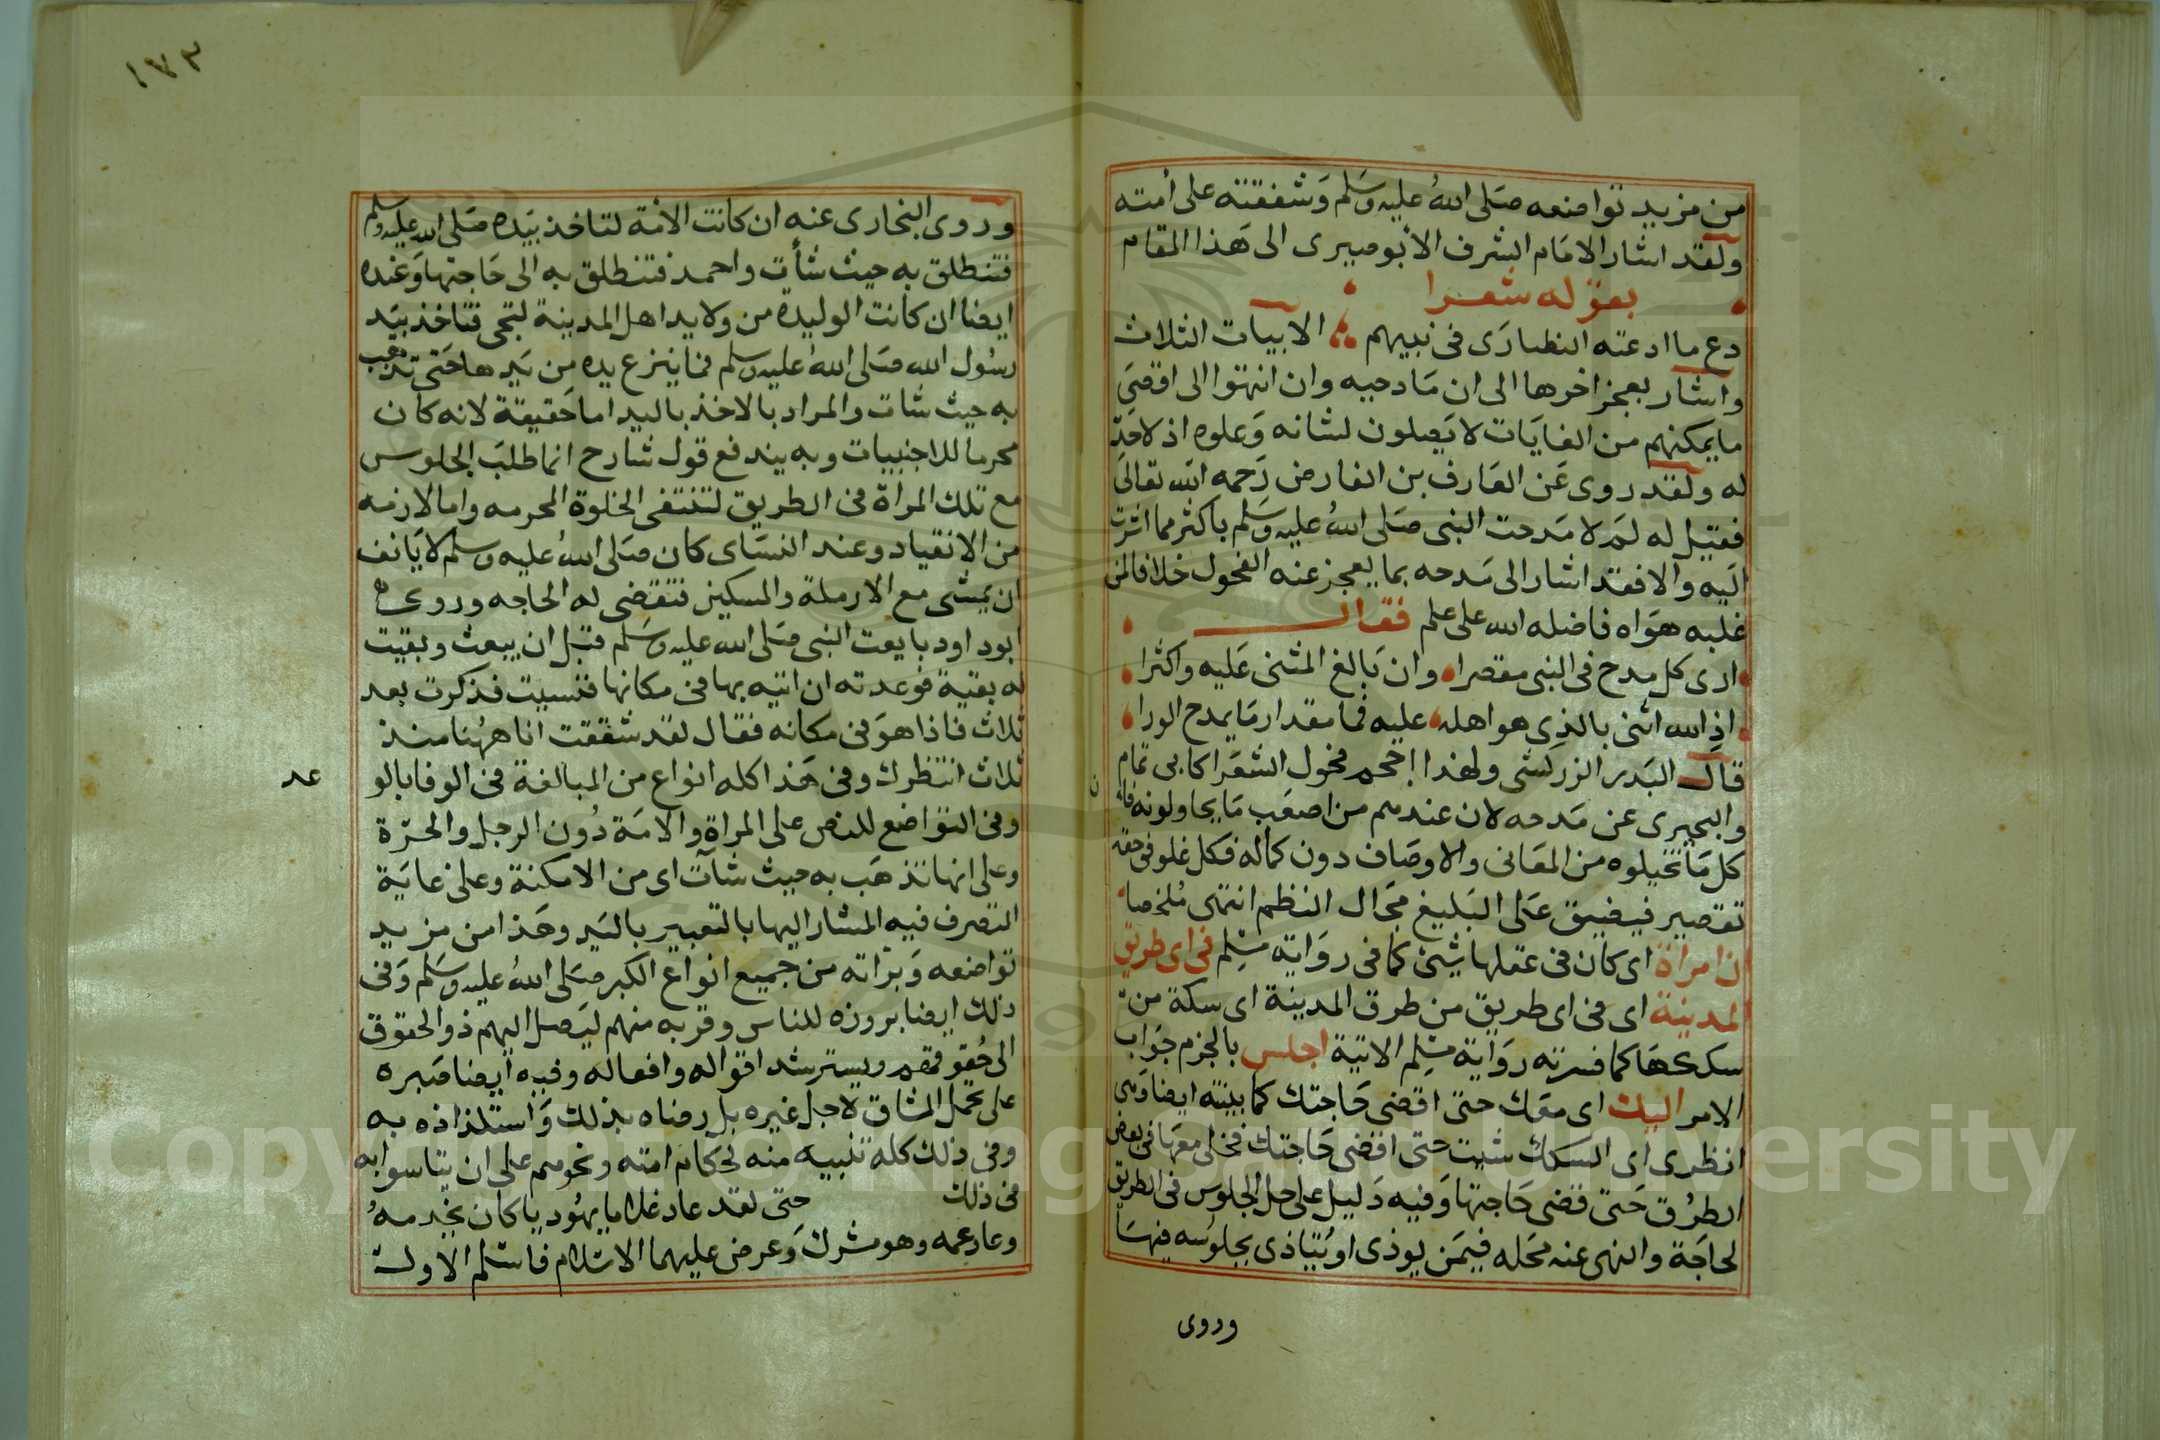 من مزيد تواضعه صَلى اللهُ عليه وسَلم وَشفقته على أمته
ولقد اشار الامَام الشرف الأبوصيرى الى هَذا المقام
بقوله شعرا
دع ما ادعته النصارَى فى نبيهم الابيات الثلاث
واشار بعجز اخرها الى ان مَادحيه وان انتهوا الى اقصَى
مايمكنهم من الغايَات لا يَصلون لشانه وَعلوه اذ لاحَدّ
له ولقد روى عَن العَارف بن الفارض رَحمه الله تعالىَ
فقيل له لمَ لا مَدحت النبى صَلى اللهُ عليه وسَلم باكثر مما اشرت
اليَه والا فقد اشار الى مَدحه بما يعجز عنه الفحول خلافا لمن
غلبه هوَاه فاضله الله على علم فقال
ارى كل مدح فى النبى مقصرا وان بَالغ المثنى عَليه واكثرا
اذ الله اثنى بالذى هو اهله عليه فما مقدار مَا يمدح الورا
قال البَدر الزركشى ولهذا احجم فحول الشعَرا كابى تمام
والبحيرى عن مَدحه لان عندهم من اصعَب مَا يحاولونه فان
كل مَا تخيلوه من المعَانى والاوصَاف دون كماله فكل غلو فى حقه
تقصير فيضيق عَلى البَليغ مجَال النظم انتهى مُلخصا
ان امراة اى كان فى عقلها شيئ كما فى روَاية مسْلم فى اى طريق
المدينة اى فى اى طريق من طرق المدينة اى سكة من
سككهَا كما فسرته روَاية مسْلم الاتية اجلس بالجزم جوَاب
الامر اليك اى معَك حتى اقضى حَاجتك كما بينته ايضا وَهى
انظرى اى السكك شئت حتى اقضى حَاجتك فخلى معَها فى بعض
الطرُق حَتى قضى حَاجتها وَفيه دَليل على حل الجلوس فى الطريق
لحاجَة والنهى عنه محَله فيمَن يوذى او يُتاذى بجلوسُه فيهَا
وروى
١٧٣
وروى البخارى عنه ان كانت الامَة لتاخذ بيَده صَلى الله عليه وسلم
فتنطلق به حيث شأت واحمد فتنطلق به الى حَاجتها وَعنده
ايضا ان كانت الوليده من ولايد اهل المدينة لتجى فتاخذ بيَد
رسُول الله صَلى اللهُ عليه وسلم فما ينزع يده من يَدها حَتى تذهب
به حيث شات والمراد بالاخذ باليد اما حَقيقة لانه كان
محرما للاجنبيات وبه يندفع قول شارح انما طلبَ الجلوس
مع تلك المراة فى الطريق لتنتفى الخلوة المحرمه واما لازمه
من الانقياد وعند النسَاى كان صَلى اللهُ عليه وسلم لا يَانف
ان يمشى مع الارملة والمسكين فتقضى له الحاجه وروى
ابوداود بايعت النبى صَلى الله عليه وسَلم قبل ان يبعث وبقيت
له بقية فوعدته ان اتيه بها فى مكانها فنسيت فذكرت بعد
ثلاث فاذا هوَ فى مكانه فقال لقد شققت انا ههُنا منذ
ثلاث انتظرك وفى هَذا كله انواع من المبالغة فى الوفا بالو
عد
وفى التوَاضع للنص على المراة والامَة دُون الرجل والحرّة
وعلى انها تذهَب به حيث شآت اى من الامكنة وعلى غايَة
التصرف فيه المشار اليها بالتعبير باليَد وهَذا من مزيد
تواضعه وَبرّاته من جميع انواع الكبر صَلى اللهُ عليه وسَلم وَفى
ذلك ايضا بروزه للناس وقربه منهم ليَصل اليهم ذو الحقوق
الى حُقوقهم ويسترشد اقواله وافعاله وفيه ايضا صَبره
على تحمل المشاق لاجل غيره بل رضاه بذلك وَاستلذاذه به
وفى ذلك كله تنبيه منه لحكام امته ونحوهم على ان يتاسوا به
فى ذلك حتى لقد عاد غلاما يهُوديا كان يخدمهُ
وعاد عمه وهو مشرك وَعرض عليهما الاسْلام فاسْلم الاول